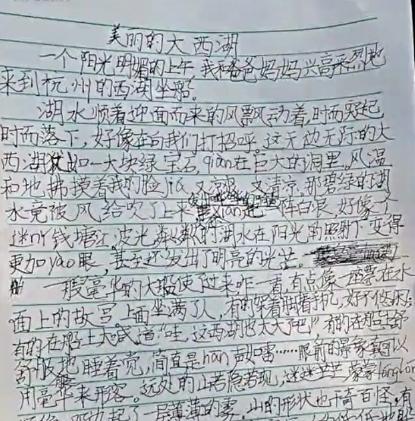 美丽的大西湖
一个阳光明媚的上午,我和爸爸妈妈兴高采烈地
来到杭州的西湖坐船。
湖水顺着迎面而来的风飘动着,时而突起
时而落下,好像在与我们打招呼。这无边无际的大
西湖如一大块绿宝石qian在巨大的洞里。风温
和地拂摸着我的脸jia,又凉爽,又清凉。那碧绿的湖
水竟被风给吹了上来,lian起一阵白浪,好像个
迷ni钱塘江,波光粼粼的湖水在阳光的照射下变得
更加yao眼,甚至还发出了明亮的光芒。
一艘豪华的大船使了过来咋一看,有点像一座漂在水
面上的故宫,上面坐满了人,有的架着胳膊
有的在船上大喊道:"哇,这西湖也太大了吧!"有的在船上舒
舒服地睡着觉,简直是han动雷……眼前的景象真可以
用 来形容。远处的山若隐若现,迷迷 蒙蒙
起了一层薄薄的雾,山的形状也千奇百怪,有